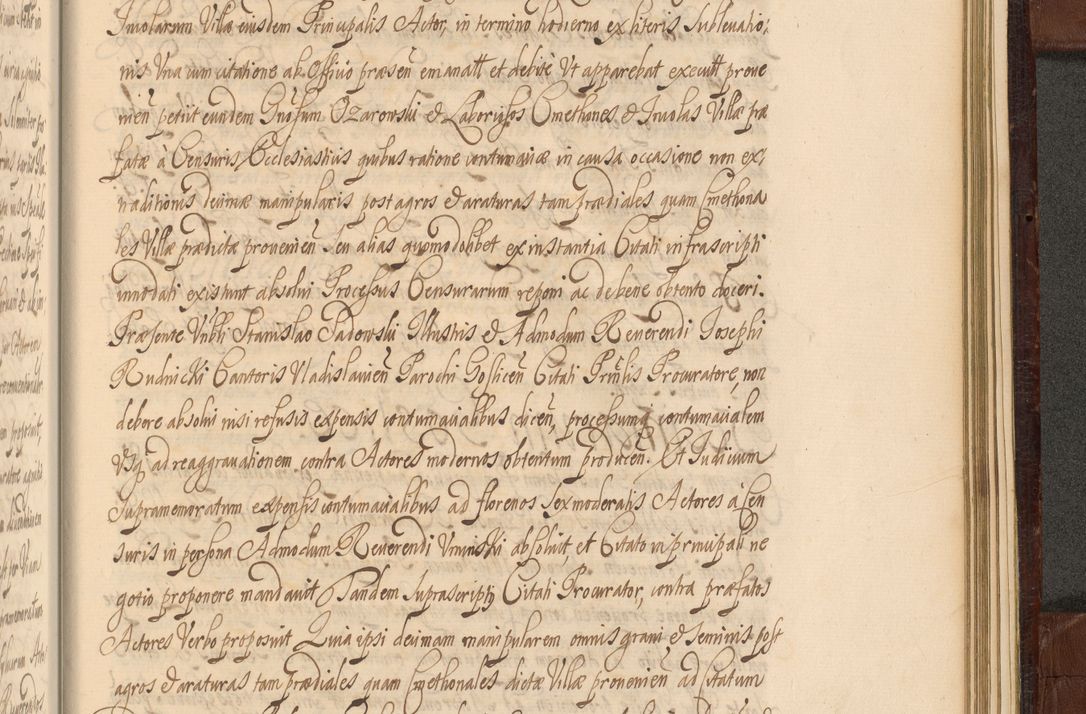 Inuolarum Villæ eiusdem Principalis Actor, in termino hodierno ex literis Subleuatio-
nis Vna cum citatione ab Officio præsen̄ emanatt et debite Vt apparebat executt proue
nien̄ petiit eundem Gnosum Ozarowski & Laboriosos Cmethones & Inuolas Villæ præ
fatæ à Censuris Ecclesiasticis quibus ratione contumaciæ in causa occasione non ex-
traditionis decimæ manipularis post agros & araturas tam prædiales quam Cmethona
les Villæ prædictæ prouenien̄ seu alias quomodolibet ex instantia Citati infrascripti
innodati existunt absolui Processus Censurarum reponi ac de bene obtento doceri.
Præsente Vnbli Stanislao Sadowski Illustris & Admodum Reuerendi Iosephi
Rudnicki Cantoris Vladislauien̄ Parochi Goslicen̄ Citati Prin̄lis Procuratore, non
debere absolui nisi refusis expensis contumacialibus dicen̄, processumq contumacialem
Vsq ad reaggrauationem contra Actores modernos obtentum producen̄. Et Iudicium
Supramemoratum expensis contumacialibus ad florenos sex moderatis Actores à Cen
suris in persona Admodum Reuerendi Vminski absoluit et Citato in principali ne
gotio proponere mandauit Tandem suprascripti Citati Procurator, contra præfatos
Actores Verbo proposuit Quia ipsi decimam manipularem omnis grani & seminis post
agros & araturas tam prædiales quam Cmethonales dictæ Villæ prouenien̄ ad Citatum